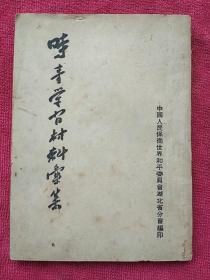 時事學習材料彙集
中國人民保衛世界和平委員會湖北省分會編印